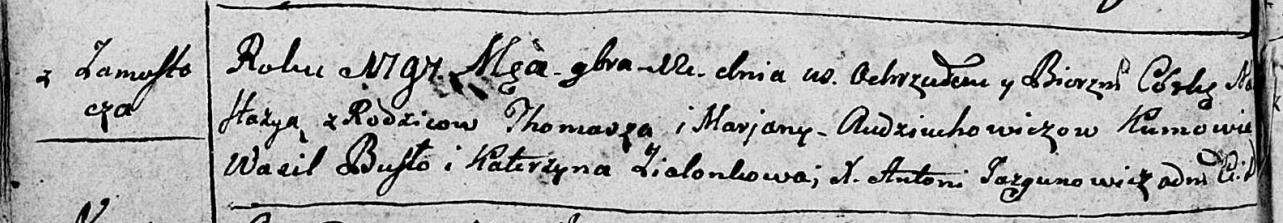 z Zamosto
cza
Roku 1797. Mca gbra 22. dnia us. Ochrzciłem y Bierzm Córkę Na
stazyą z Rodzicow Thomasza i Marjany Audziuchowiczow Kumowie
Wasil Busło i Katerzyna Zielonkowa; X. Antoni Jazgunowicz adm